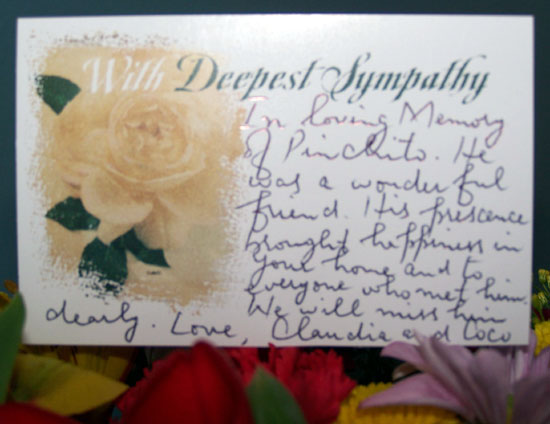 With Deepest Sympathy
In loving Memory
of Pinchito. He
was a wonderful
friend. His prescence
brought happiness in
your home and to
everyone who met him.
We will miss him
dearly. Love, Claudia and Coco